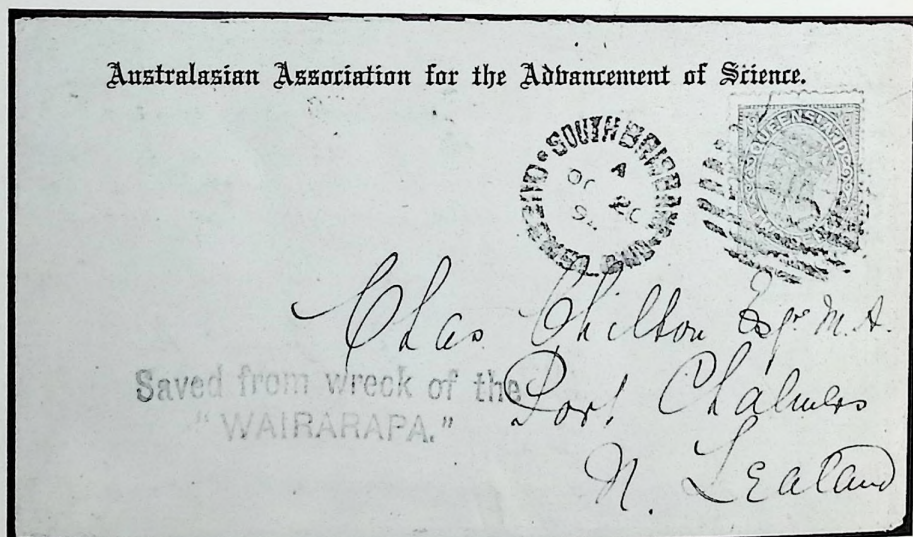 Australasian Association for the Advancement of Science.
SOUTH BRISBANE
QUEENSLAND
A
OC 20
QUEENSLAND
Chas Chilton Esqre M.A.
Port Chalmers
N. Zealand
Saved from wreck of the
"WAIRARAPA."